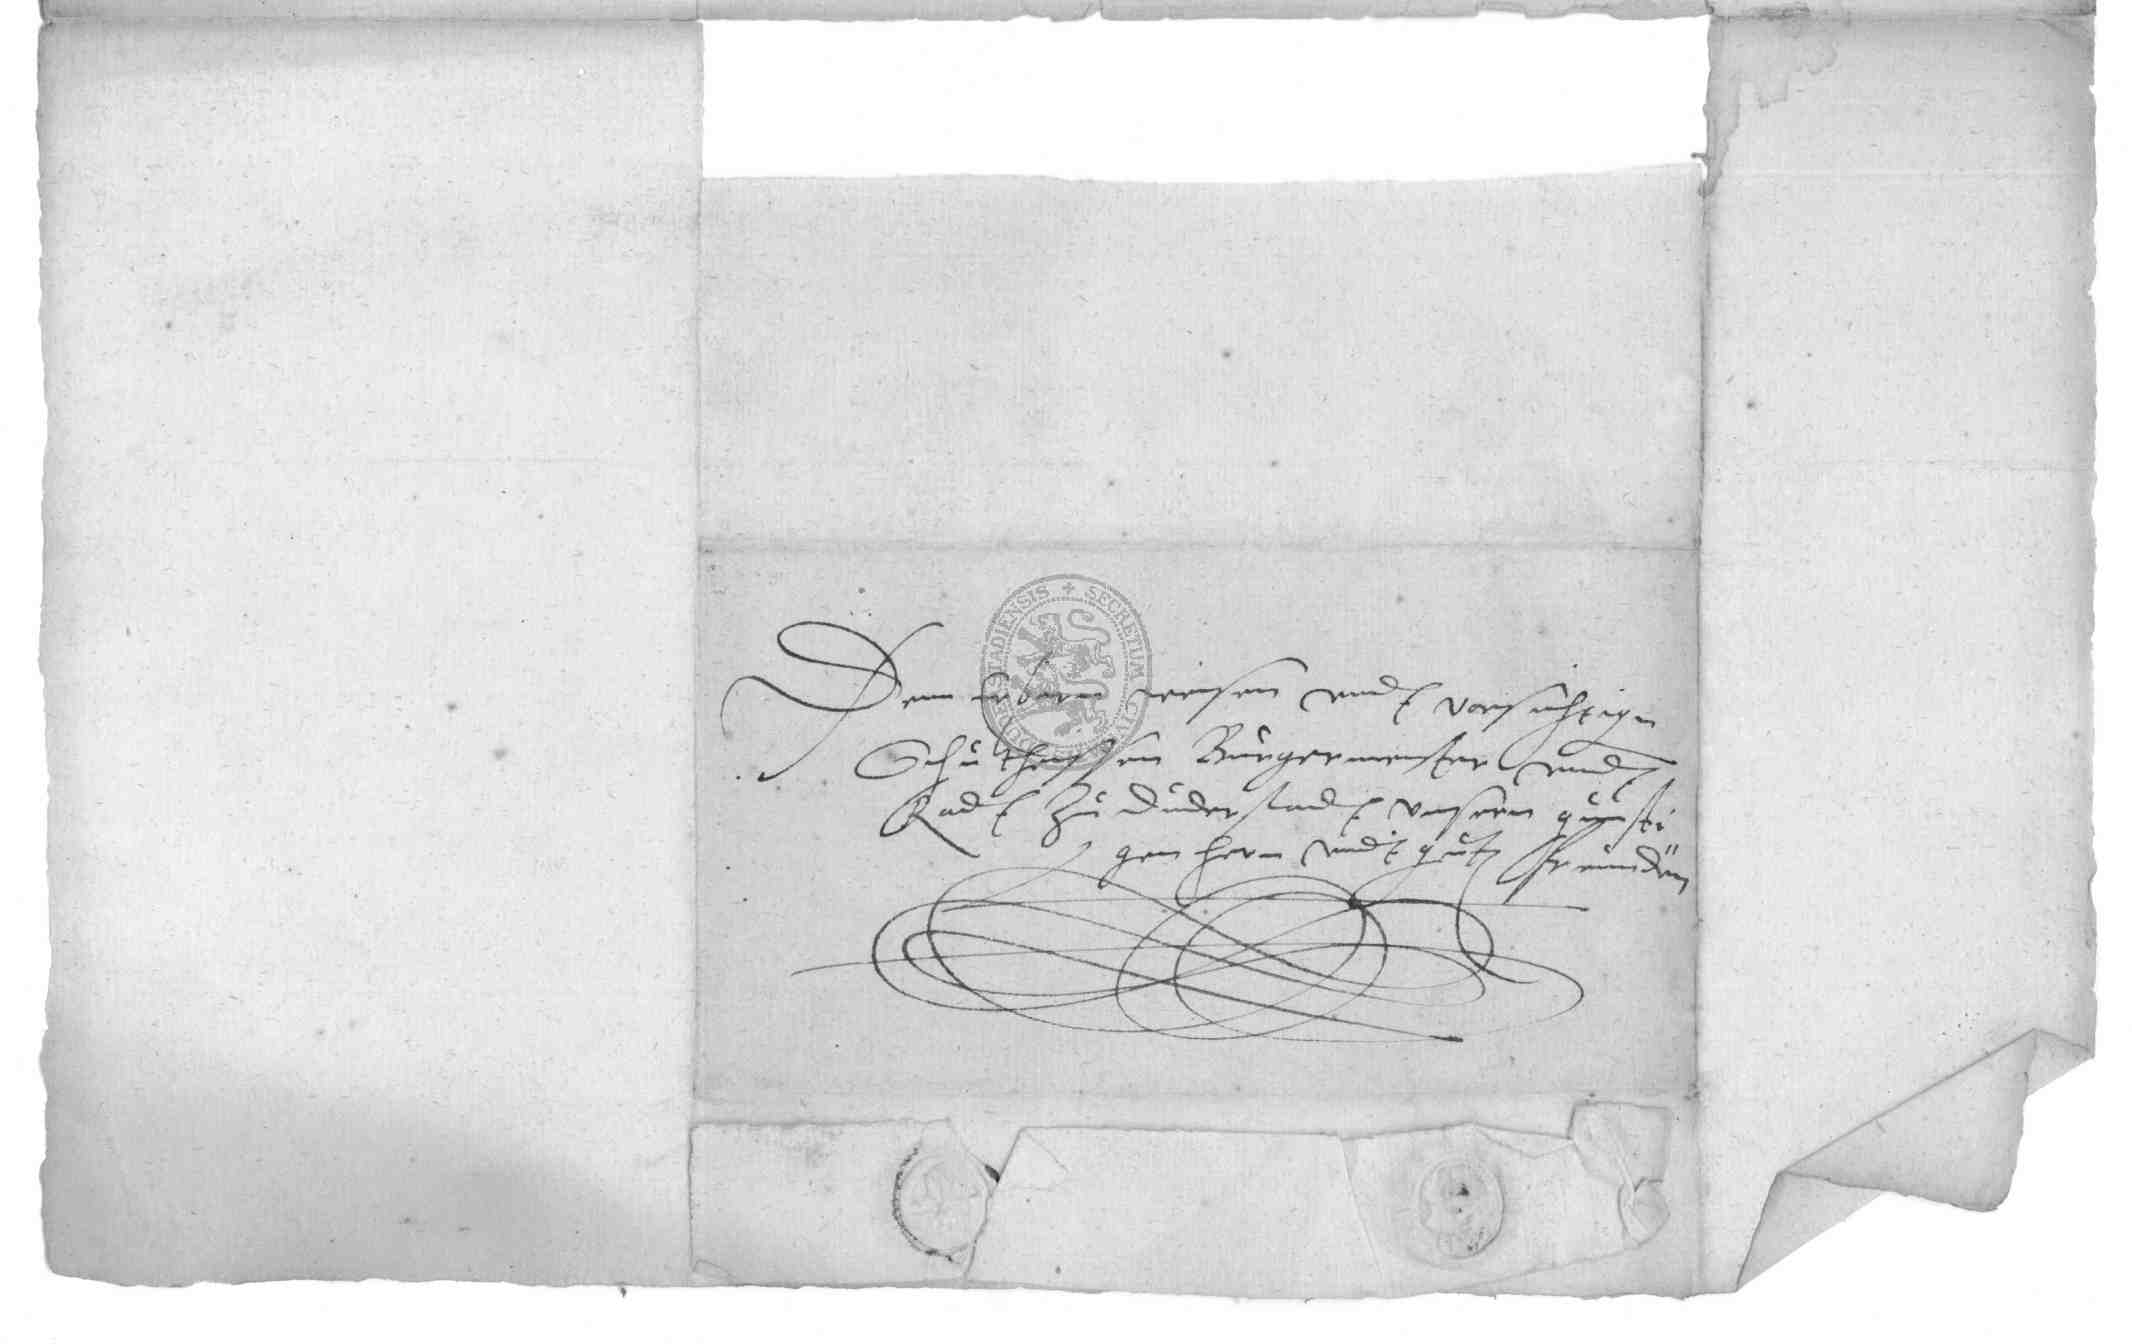 SECRETUM CIV DUDERSTADIENSIS
Den erbarn weisen vnd vorsichtigen
Schultheyssen Burgermeister vnd
Rad zu Duderstad vnsern gunsti
gen hern vnd gutē freunden